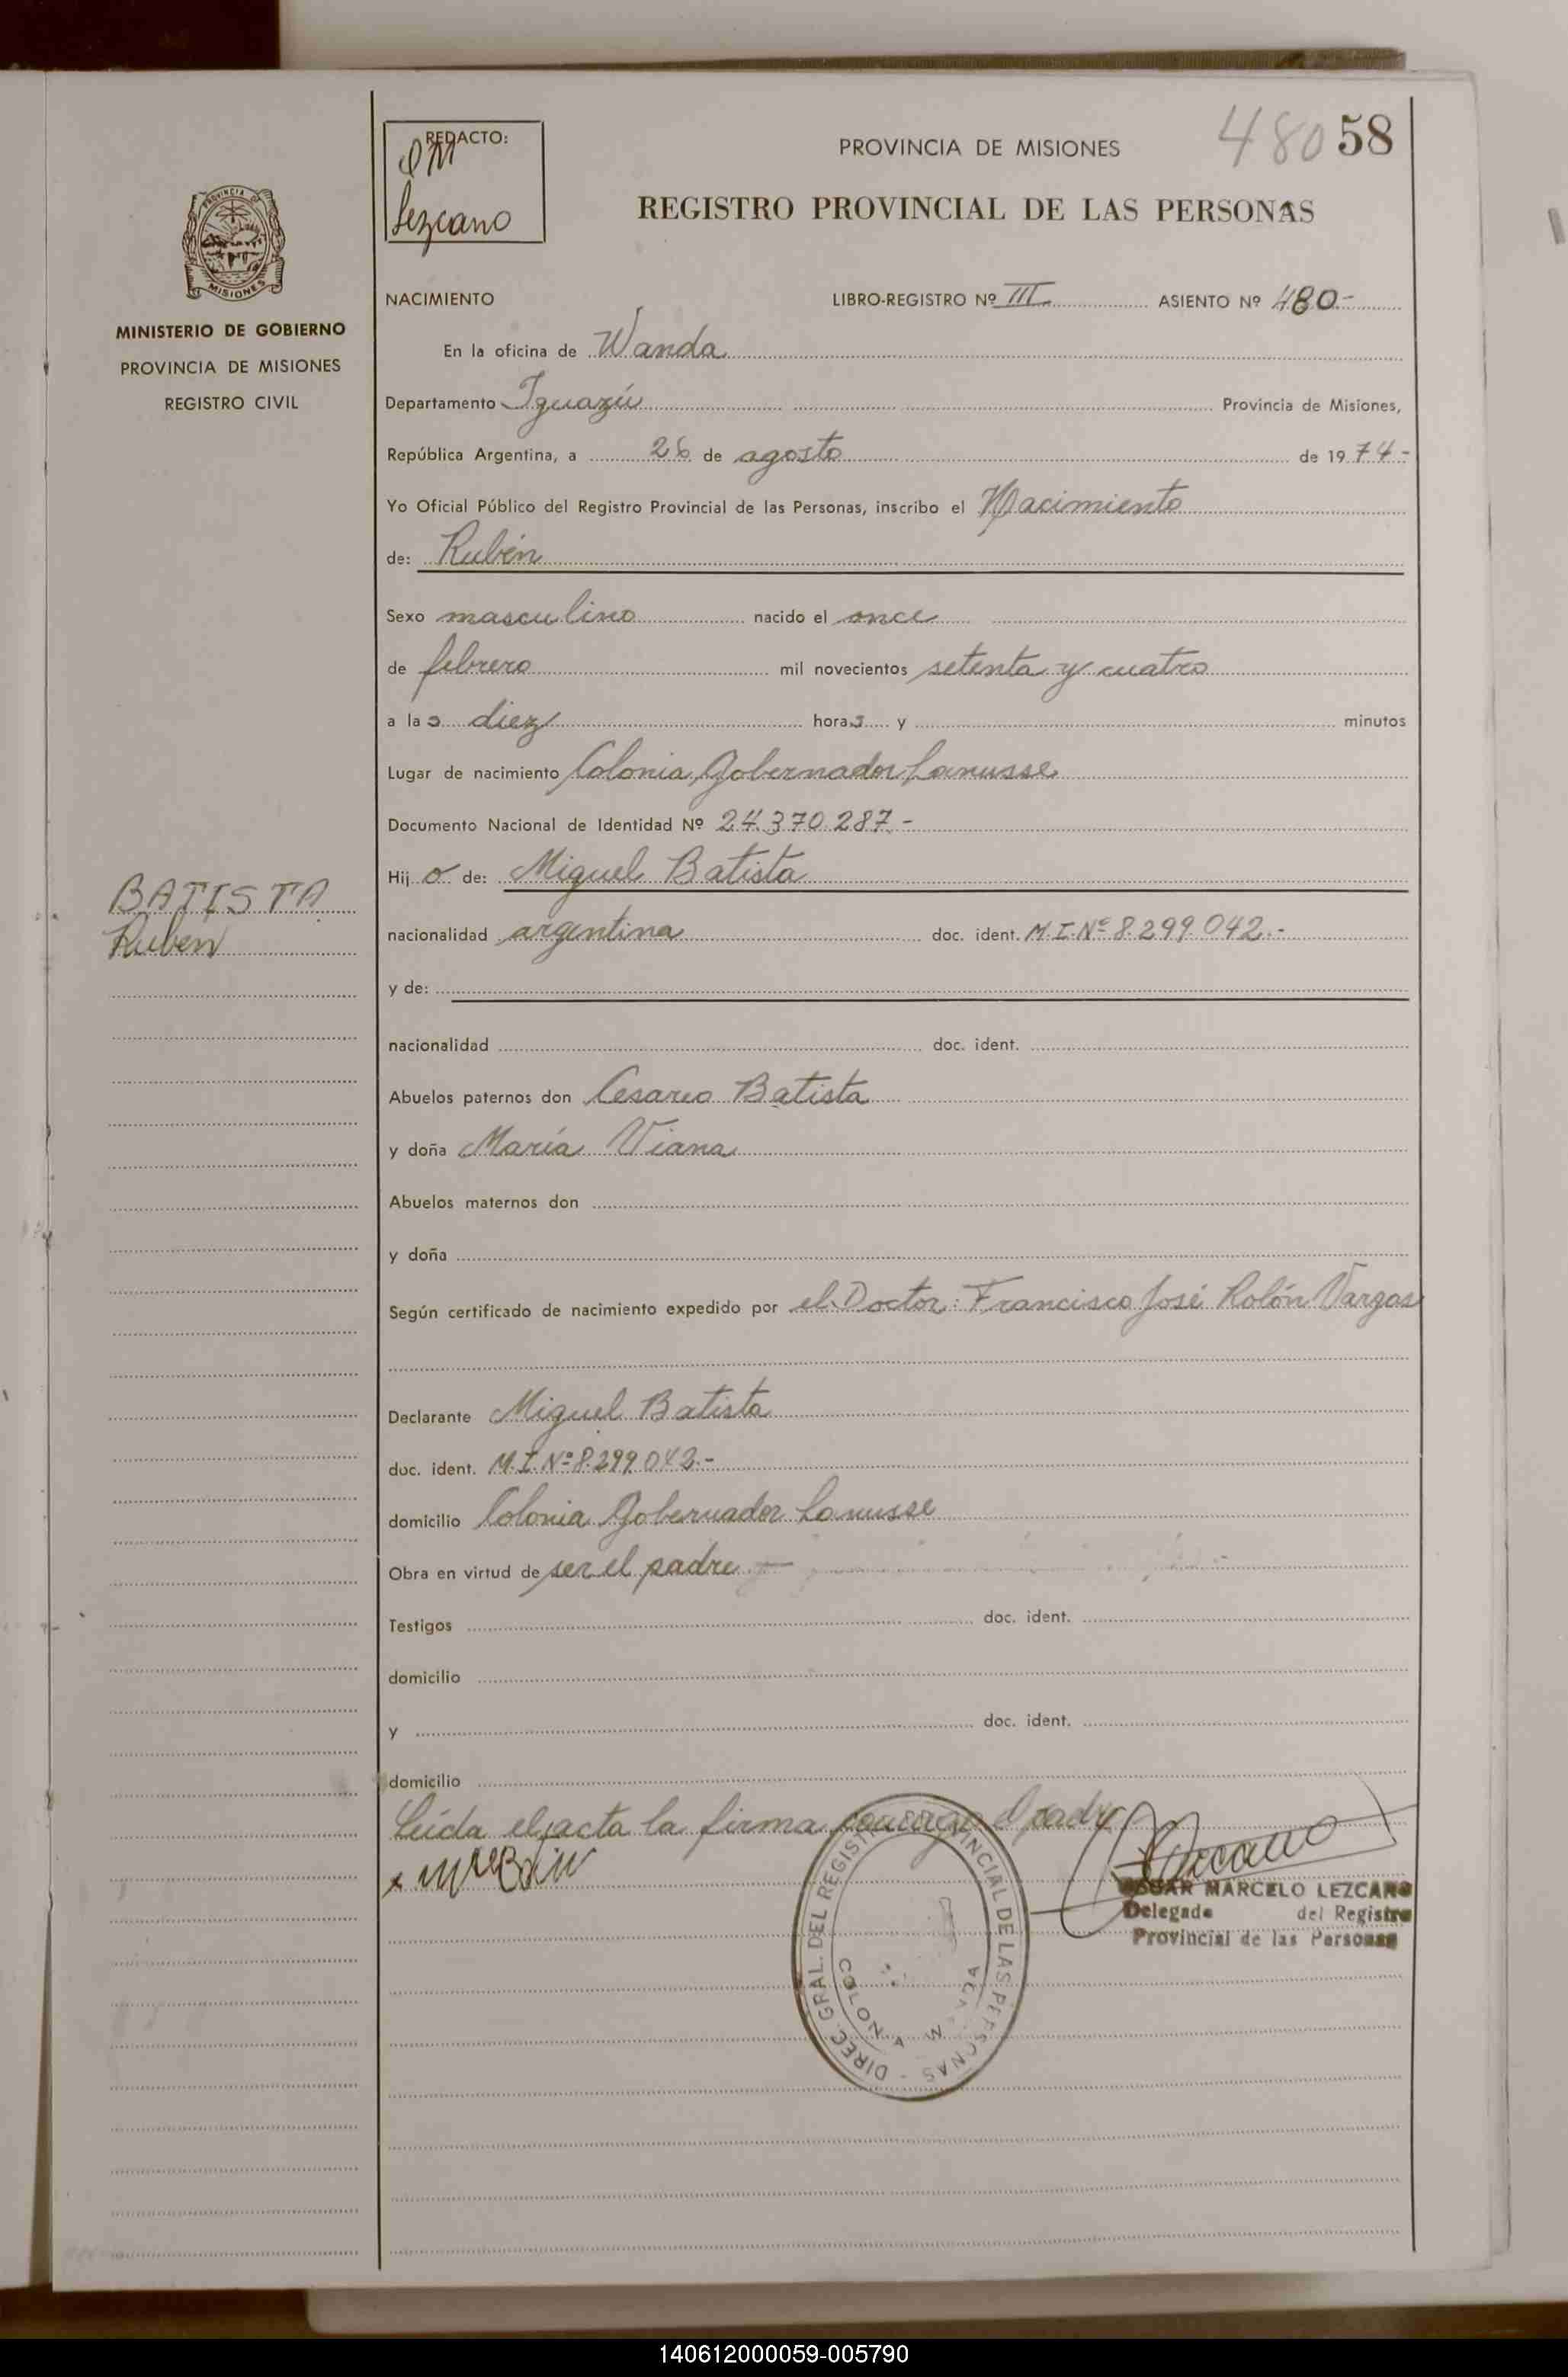 480 58
REDACTO:
OM
Lezcano
PROVINCIA DE MISIONES
REGISTRO PROVINCIAL DE LAS PERSONAS
PROVINCIA DE
MISIONES
MINISTERIO DE GOBIERNO
PROVINCIA DE MISIONES
REGISTRO CIVIL
NACIMIENTO LIBRO-REGISTRO Nº III ASIENTO Nº 480-
En la oficina de Wanda
Departamento Iguazú Provincia de Misiones,
República Argentina, a 26 de agosto de 1974-
Yo Oficial Público del Registro Provincial de las Personas, inscribo el Nacimiento
de: Rubén
Sexo masculino nacido el once
de febrero mil novecientos setenta y cuatro
a las diez horas y minutos
Lugar de nacimiento Colonia Gobernador Lanusse
Documento Nacional de Identidad Nº 24.370.287-
Hijo de: Miguel Batista
BATISTA
Rubén
nacionalidad argentina doc. ident. M.I.Nº 8.299.042.-
y de:
nacionalidad doc. ident.
Abuelos paternos don Cesareo Batista
y doña María Viana
Abuelos maternos don
y doña
Según certificado de nacimiento expedido por el Doctor: Francisco José Rolón Vargas
Declarante Miguel Batista
doc. ident. M.I.Nº 8.299.042.-
domicilio Colonia Gobernador Lanusse
Obra en virtud de ser el padre
Testigos doc. ident.
domicilio
y doc. ident.
domicilio
Leída el acta la firma conmigo el padre
x
OSCAR MARCELO LEZCANO
Delegado del Registro
Provincial de las Personas
DIREC. GRAL. DEL REGISTRO PROVINCIAL DE LAS PERSONAS -
COLONIA WANDA
140612000059-005790